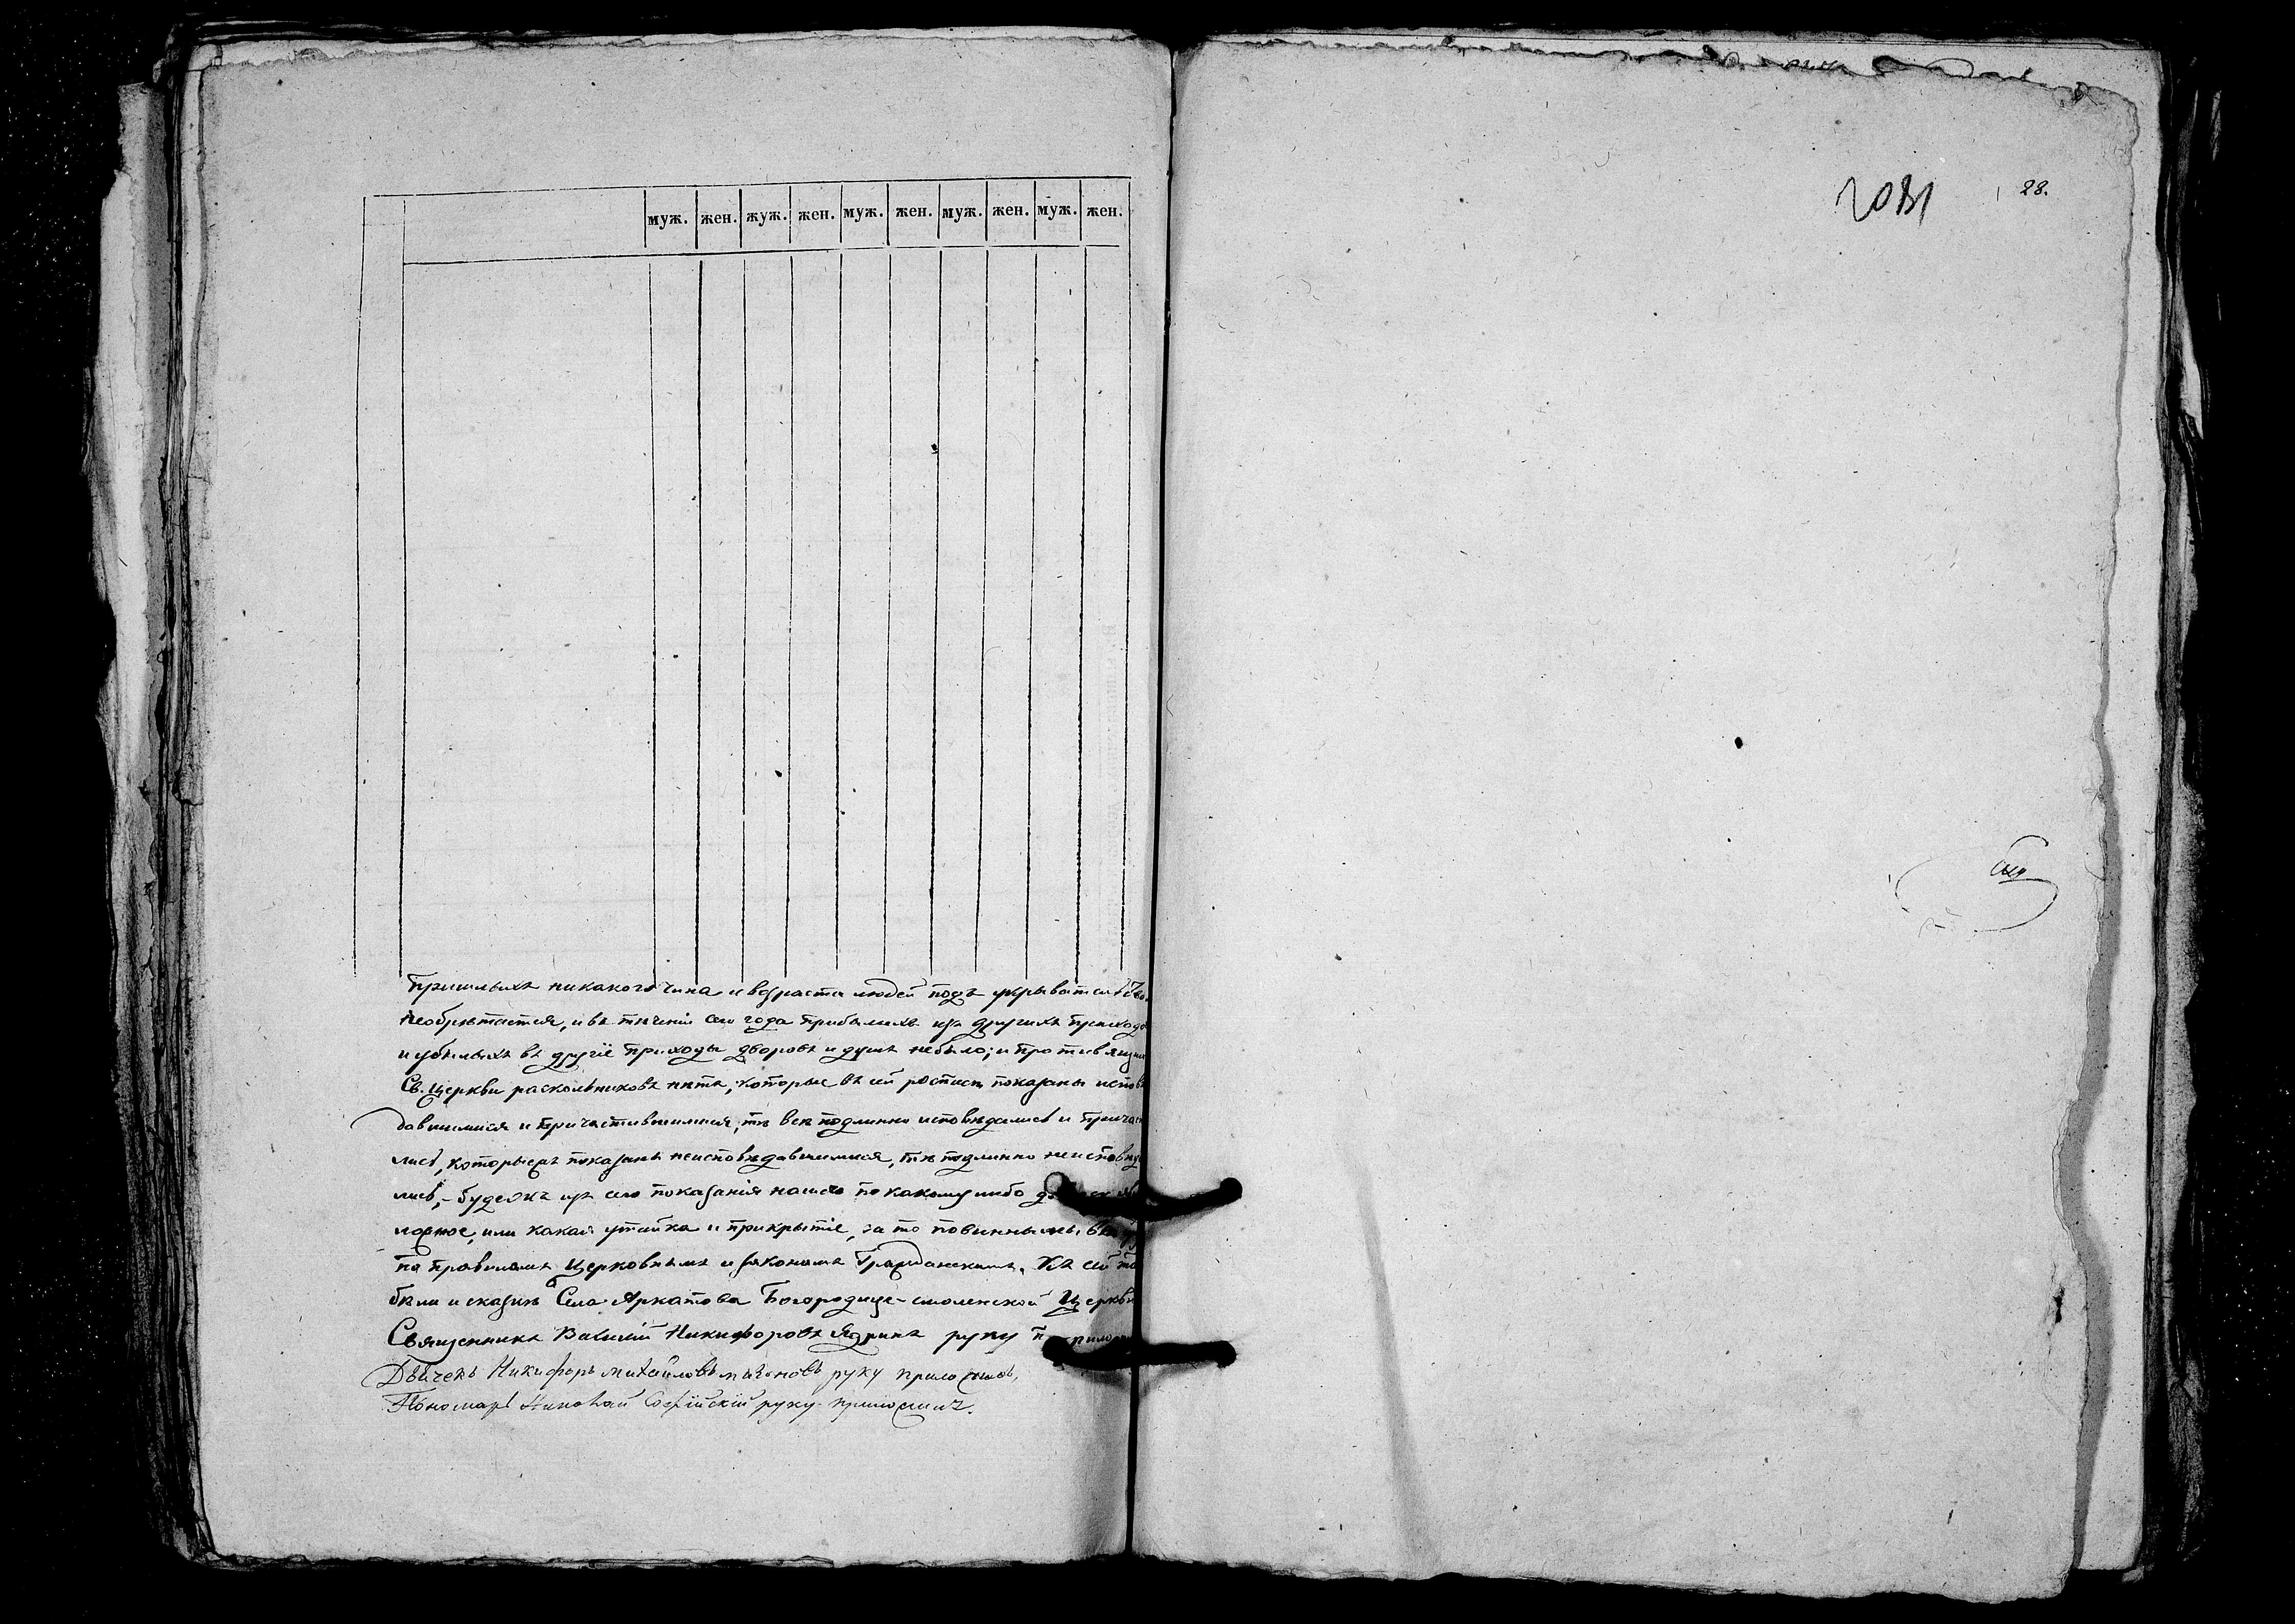 муж. жен. жуж. жен. муж. жен. муж. жен. муж. жен.
Пришлыхъ никакого чина и возраста людей подъ укрывательство
необрѣтается, и въ теченіи сего года прибылыхъ изъ другихъ приходо
и убылыхъ въ другіе приходы дворовъ и душъ небыло; и противящих
Св. Церкви раскольниковъ нѣтъ, которые въ сей росписи показаны испов
давшимися и причастившимися, тѣ всѣ подлинно исповѣдались и прича
лись, которыежъ показаны неисповѣдавшимися, тѣ подлинно неисповѣд
лись, - будежъ изъ сего показанія нашего по какому либо
ложное, или какая утайка и прикрытіе, за то повинны мы
по правиламъ Церковнымъ и законамъ Гражданскимъ. Къ сей
Села Аркатова Богородице-смоленской Церкви
Священникъ Василій Никифоровъ Ядринъ руку
Дьячекъ Никифоръ Михайловъ руку приложилъ,
Пономарь Николай Софійскій руку приложилъ.
28.